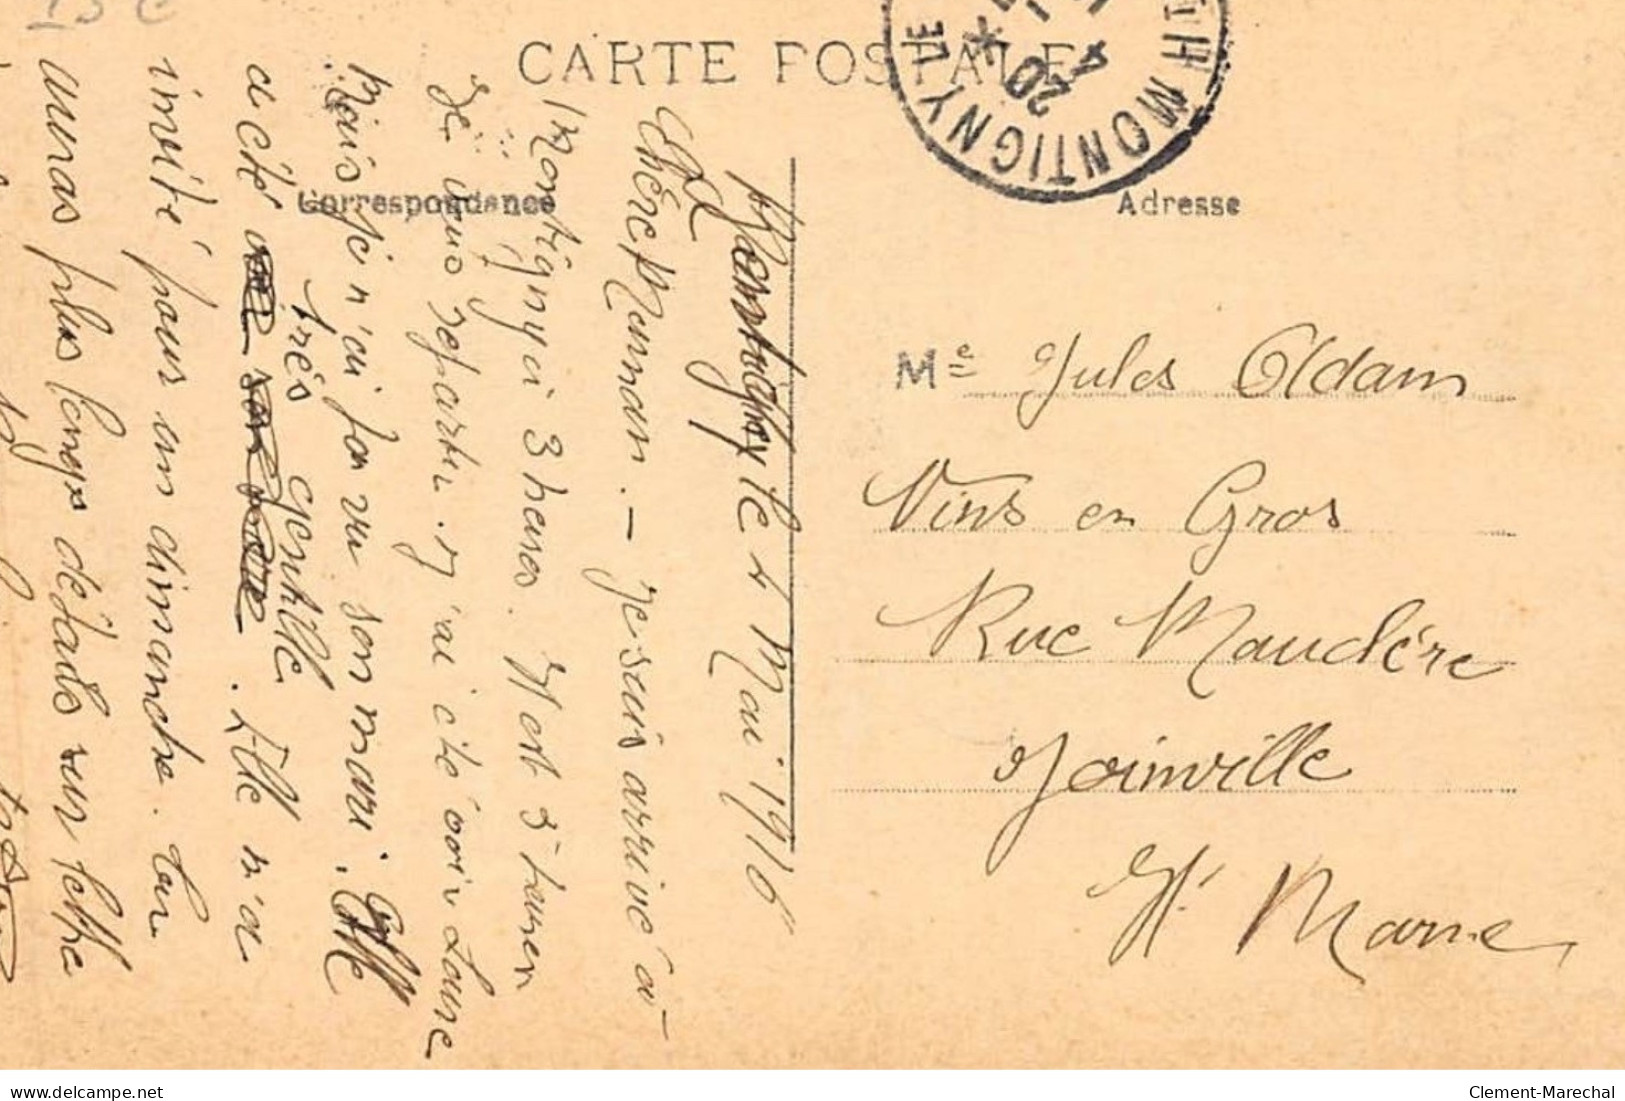 15 €
CARTE POSTALE
MONTIGNY-LE
20 *
4
Correspondance
Adresse
Montigny le 4 Mai 1916
Chère Maman. – Je suis arrivé à
Montigny à 3 heures. Il est 5 heures
Je vais repartir. J'ai été voir Laure
Mais je n'ai pas vu son mari. Elle
a été très gentille. Elle n'a
invité pour un dimanche. Tu
auras plus longs détails sur lettre
Me Jules Adam
Vins en Gros
Rue Maudère
Joinville
Hte Marne
delcampe.net
Clement-Marechal